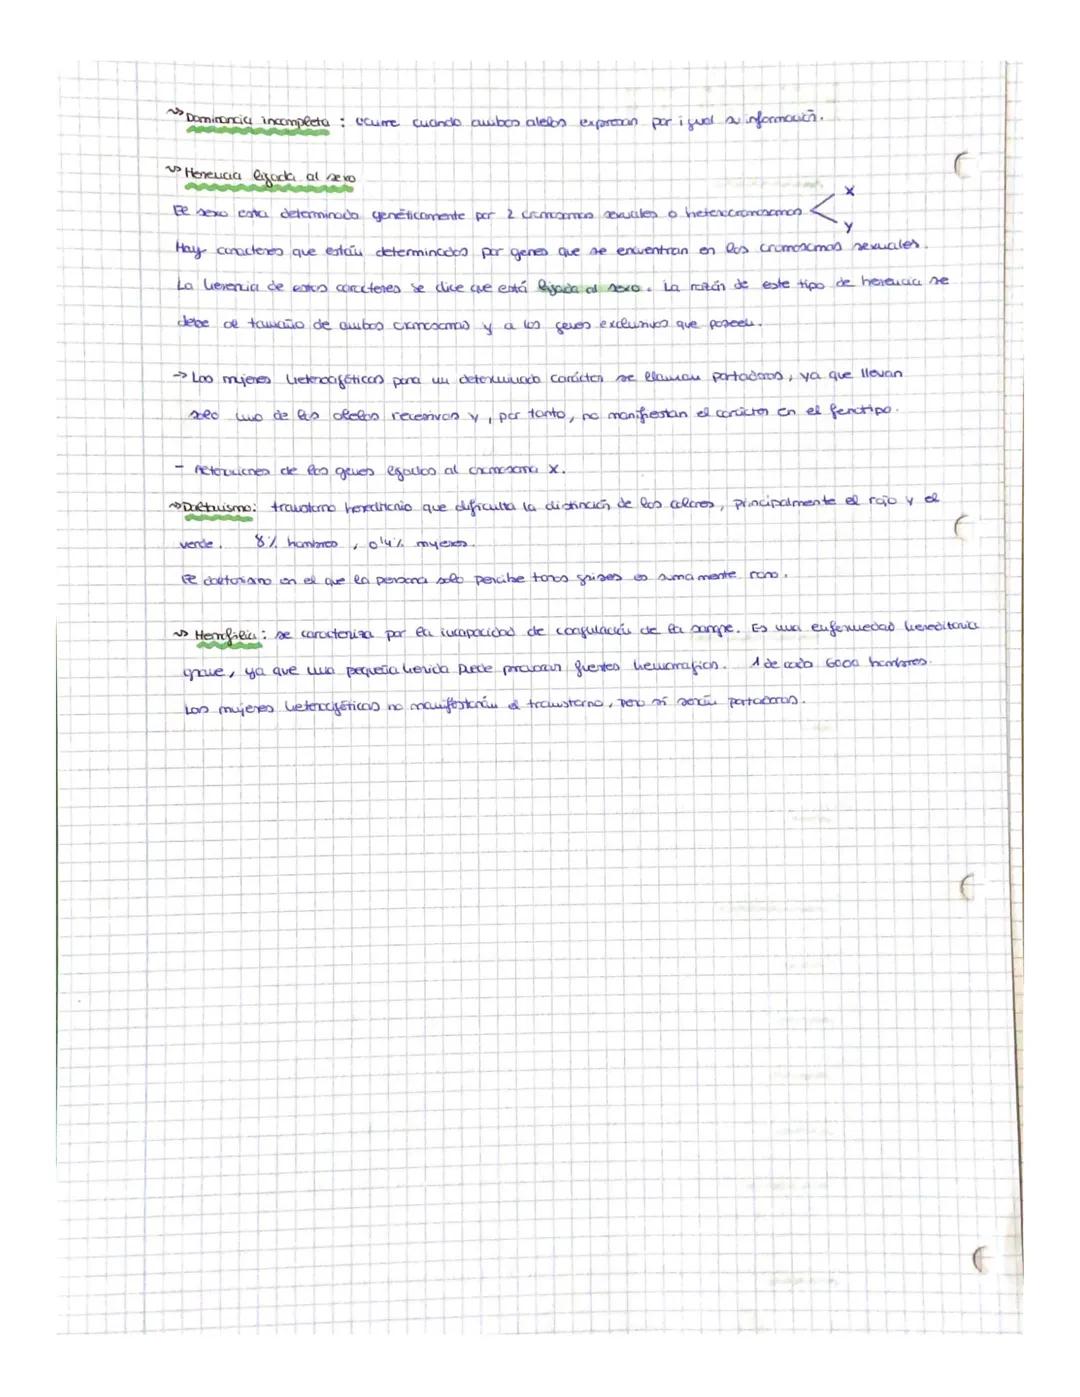 Dominancia incompleta : ocurre cuando ambos alelos expresan por igual su información.
Herencia ligada al sexo
El sexo esta determinado genéticamente por 2 cromosomas sexuales o heterocromosomas < X
Y
Hay caracteres que están determinados por genes que se encuentran en los cromosomas sexuales.
La herencia de estos caracteres se dice que está ligada al sexo. La razón de este tipo de herencia se
debe al tamaño de ambos cromosomas y a los genes exclusivos que poseen.
→ Las mujeres heterocigóticas para un determinado carácter se llaman portadoras, ya que llevan
solo uno de los alelos recesivos y, por tanto, no manifiestan el carácter en el fenotipo.
- Alteraciones de los genes ligados al cromosoma X.
Daltonismo: transtorno hereditario que dificulta la distinción de los colores, principalmente el rojo y el
verde. 8% hombres, 0'4% mujeres.
El daltonismo en el que la persona solo percibe tonos grises es sumamente raro.
Hemofilia: se caracteriza por la incapacidad de coagulación de la sangre. Es una enfermedad hereditaria
grave, ya que una pequeña herida puede provocar fuertes hemorragias. 1 de cada 6000 hombres.
Las mujeres heterocigóticas no manifestarán el transtorno, pero sí serán portadoras.